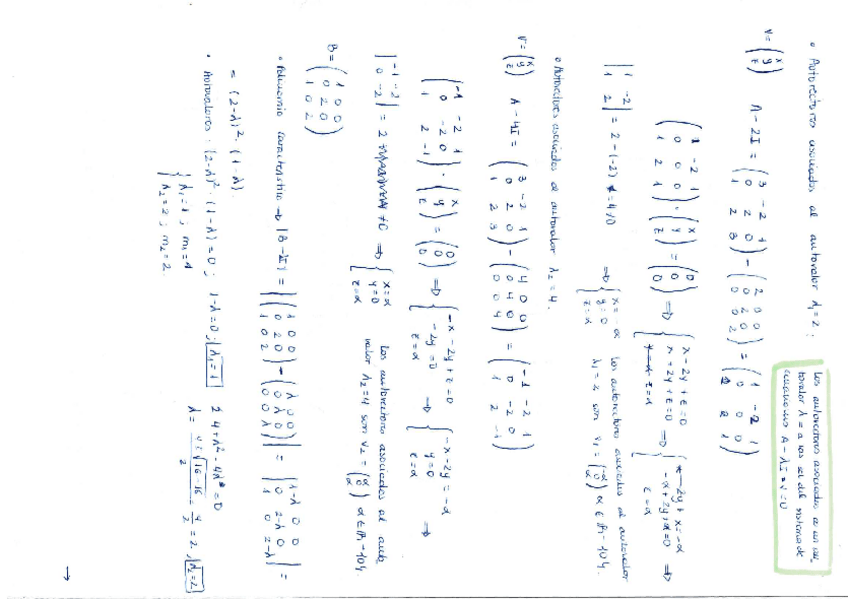 • Autovectores asociados al autovalor λ₁=2;
Los autovectores asociados a un au-
tovalor λ = a los sol del sistema de
ecuaciones A - λI · v = 0
V = (x y z) A-2I = (3 -2 1 / 0 2 0 / 1 2 3) - (2 0 0 / 0 2 0 / 0 0 2) = (1 -2 1 / 0 0 0 / 1 2 1)
(1 -2 1 / 0 0 0 / 1 2 1) · (x y z) = (0 0 0) ⇒ { x-2y+z=0 / x+2y+z=0 / z=α ⇒
|1 -2 / 1 2| = 2-(-2) = 4≠0 ⇒ { x=-α / y=0 / z=α
Los autovectores asociados al autovalor
λ₁=2 son v₁ = (-α 0 α) α∈ℝ-{0}.
• Autovectores asociados al autovalor λ₂=4.
V = (x y z) A-4I = (3 -2 1 / 0 2 0 / 1 2 3) - (4 0 0 / 0 4 0 / 0 0 4) = (-1 -2 1 / 0 -2 0 / 1 2 -1)
(-1 -2 1 / 0 -2 0 / 1 2 -1) · (x y z) = (0 0 0) ⇒ { -x-2y+z=0 / -2y=0 / z=α ⇒ { -x-2y=-α / y=0 / z=α ⇒
|-1 -2 / 0 -2| = 2 ≠0 ⇒ { x=α / y=0 / z=α
Los autovectores asociados al auto
valor λ₂=4 son v₂ = (α 0 α) α∈ℝ-{0}.
B = (1 0 0 / 0 2 0 / 1 0 2)
• Polinomio característico → |B-λI| = |(1 0 0 / 0 2 0 / 1 0 2) - (λ 0 0 / 0 λ 0 / 0 0 λ)| = |1-λ 0 0 / 0 2-λ 0 / 1 0 2-λ| =
= (2-λ)² · (1-λ).
• Autovalores: (2-λ)² · (1-λ)=0; 1-λ=0; λ₁=1
{ λ₁=1; m₁=1
λ₂=2; m₂=2.
4+λ²-4λ=0
λ = 4±√16-16 / 2 = 4/2 = 2; λ₂=2
→